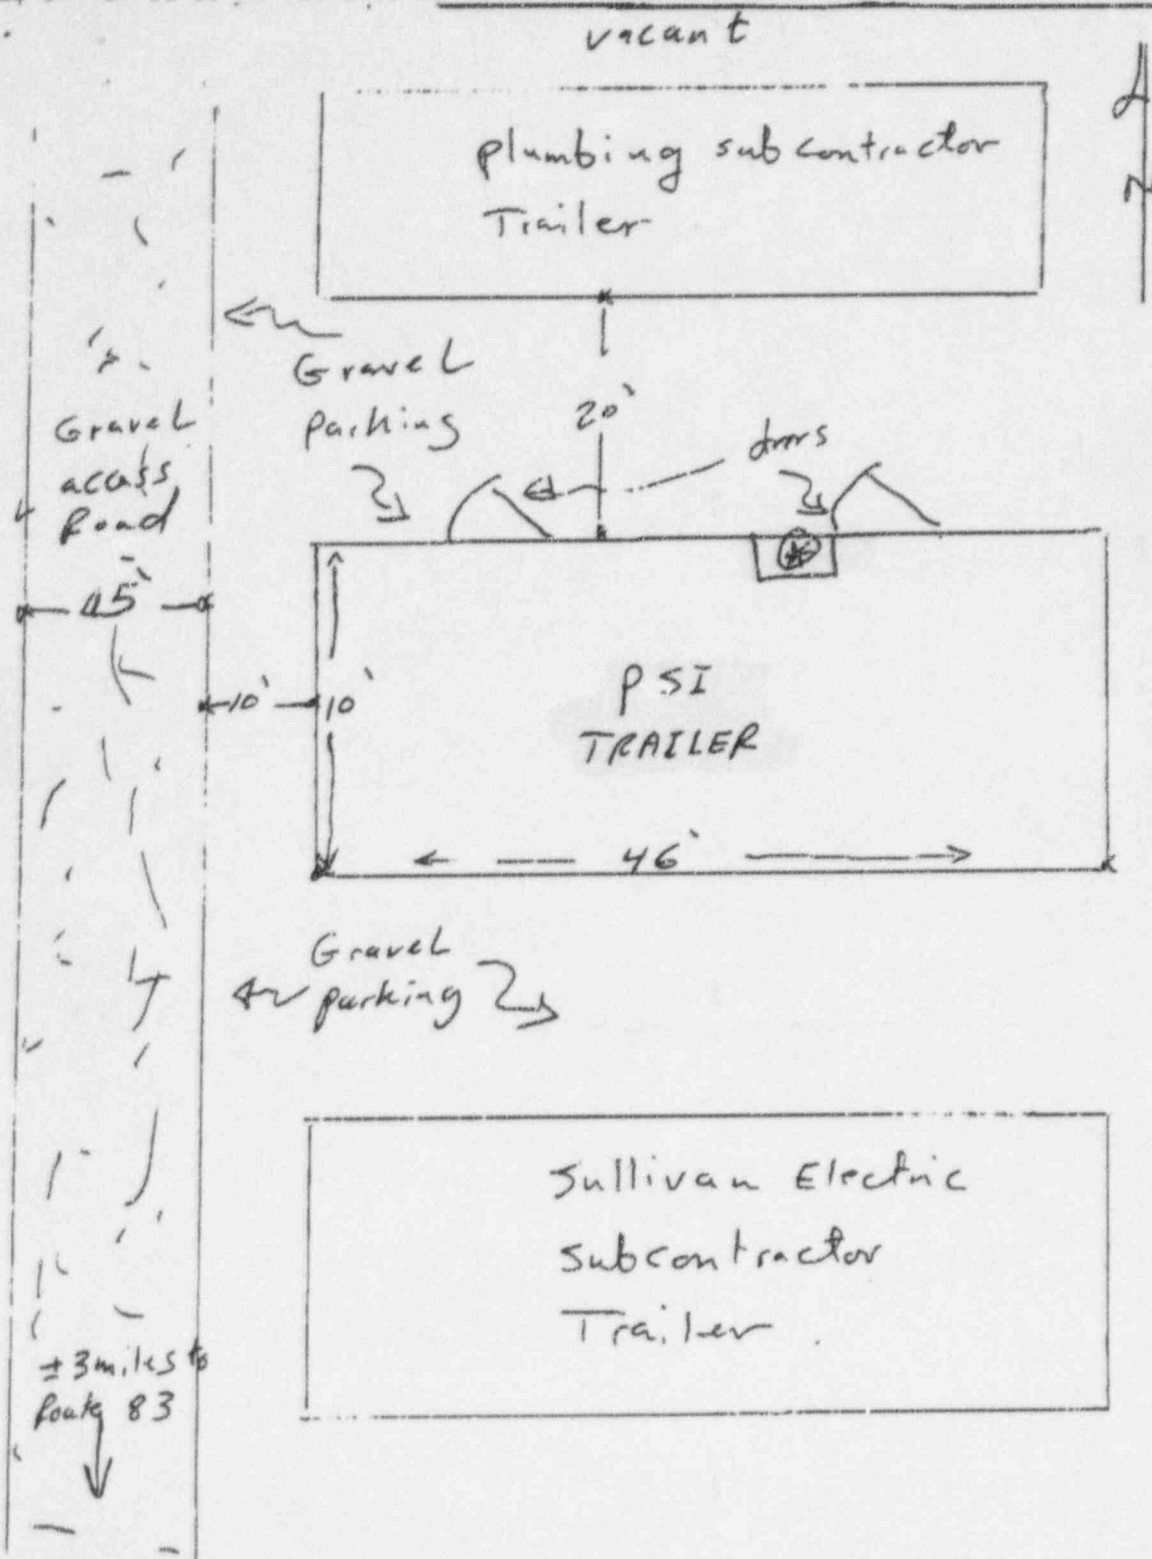 vacant
plumbing subcontractor
Trailer
Gravel
parking
20'
doors
Gravel
access
Road
45'
10'
10'
PSI
TRAILER
46'
Gravel
parking
Sullivan Electric
Subcontractor
Trailer
±3 miles to
Route 83